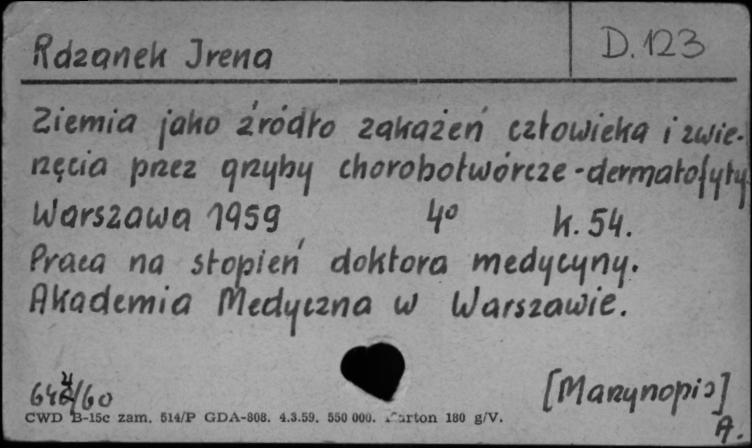 Rdzanek Irena
D. 123
Ziemia jako źródło zakażeń człowieka i zwie-
rzęcia przez grzyby chorobotwórcze - dermatofyty
Warszawa 1959 4° k. 54.
Praca na stopień doktora medycyny.
Akademia Medyczna w Warszawie.
[Maszynopis]
A.
CWD B-15c zam. 514/P GDA-808. 4.3.59. 550 000. Karton 180 g/V.